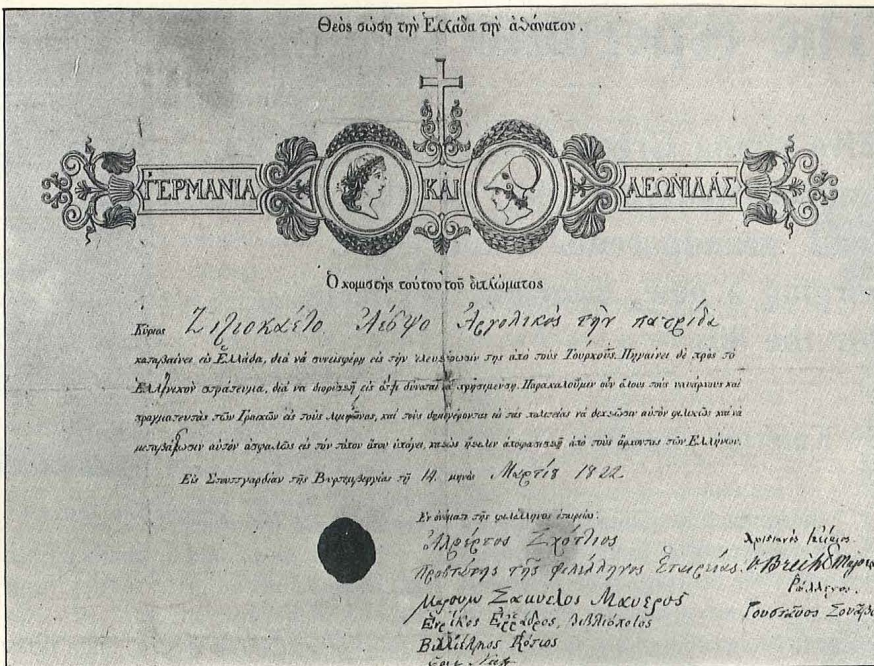 Θεὸς σώση τὴν Ἑλλάδα τὴν ἀθάνατον.
ΓΕΡΜΑΝΙΑ ΚΑΙ ΛΕΩΝΙΔΑΣ
Ὁ κομιστὴς τούτου τοῦ διπλώματος
Κύριος Ἀργολικὸς τὴν πατρίδα
καταβαίνει εἰς Ἑλλάδα, διὰ νὰ συνεισφέρῃ εἰς τὴν ἐλευθέρωσίν της ἀπὸ τοὺς Τούρκους. Πηγαίνει δὲ πρὸς τὸ
Ἑλληνικὸν στράτευμα, διὰ νὰ διορισθῇ εἰς ὅ,τι δύναται νὰ χρησιμεύσῃ. Παρακαλοῦμεν οὖν ὅλους τοὺς ναυάρχους καὶ
πραγματευτὰς τῶν Γραικῶν εἰς τοὺς λιμιῶνας, καὶ τοὺς δημογέροντας εἰς τὰς πολιτείας νὰ δεχθῶσιν αὐτὸν φιλικῶς καὶ νὰ
μεταβιβάσωσιν αὐτὸν ἀσφαλῶς εἰς τὸν τόπον ὅπου ὑπάγει, καθὼς ἤθελεν ἀποφασισθῇ ἀπὸ τοὺς ἄρχοντας τῶν Ἑλλήνων.
Εἰς Στουτγαρδίαν τῆς Βυρτεμβεργίας τῇ 14 μηνὸς Μαρτίȣ 1822
Ἐν ὀνόματι τῆς φιλέλληνος ἑταιρείας:
Ἀλβέρτος Σχόττιος
Προστάτης τῆς φιλέλληνος Ἑταιρείας.
Σαμυελος Μαυερος
Ἐρρίκος Ἐρρᾶδρος, βιβλιοπώλος
Χριστιανὸς
Γουσταῦος